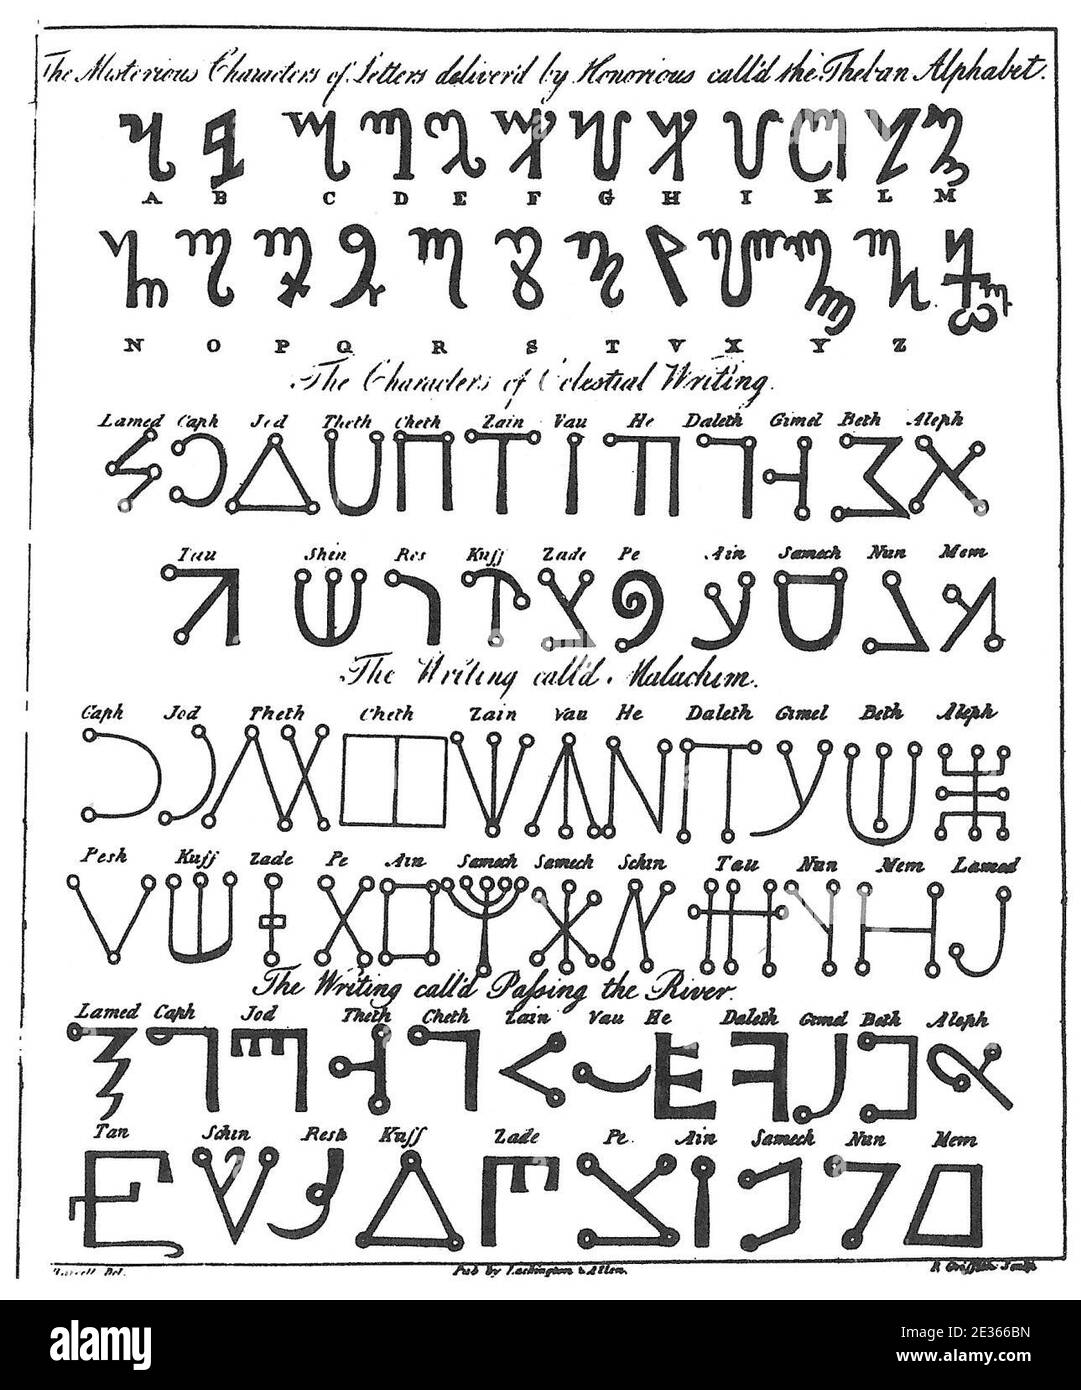 The Misterious Characters of Letters deliver'd by Honorious call'd the Theban Alphabet.
A B C D E F G H I K L M
N O P Q R S T V X Y Z
The Characters of Celestial Writing.
Lamed Caph Jod Theth Cheth Zain Vau He Daleth Gimel Beth Aleph
Tau Shin Res Kuff Zade Pe Ain Samech Nun Mem
The Writing call'd Malachim.
Caph Jod Theth Cheth Zain Vau He Daleth Gimel Beth Aleph
Pesh Kuff Zade Pe Ain Samech Samech Schin Tau Nun Mem Lamed
The Writing call'd Paſsing the River.
Lamed Caph Jod Theth Cheth Zain Vau He Daleth Gimel Beth Aleph
Tan Schin Resh Kuff Zade Pe. Ain Samech Nun Mem
Del. Pub by Lackington & Allen. R Griffith Sculp
alamy
Image ID: 2E366BN
www.alamy.com